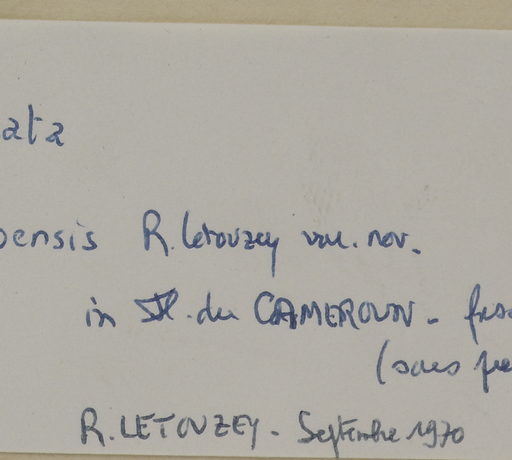 ata
ensis R. Letouzey var. nov.
in Fl. du CAMEROUN - fasc
(sous
R. LETOUZEY - Septembre 1970